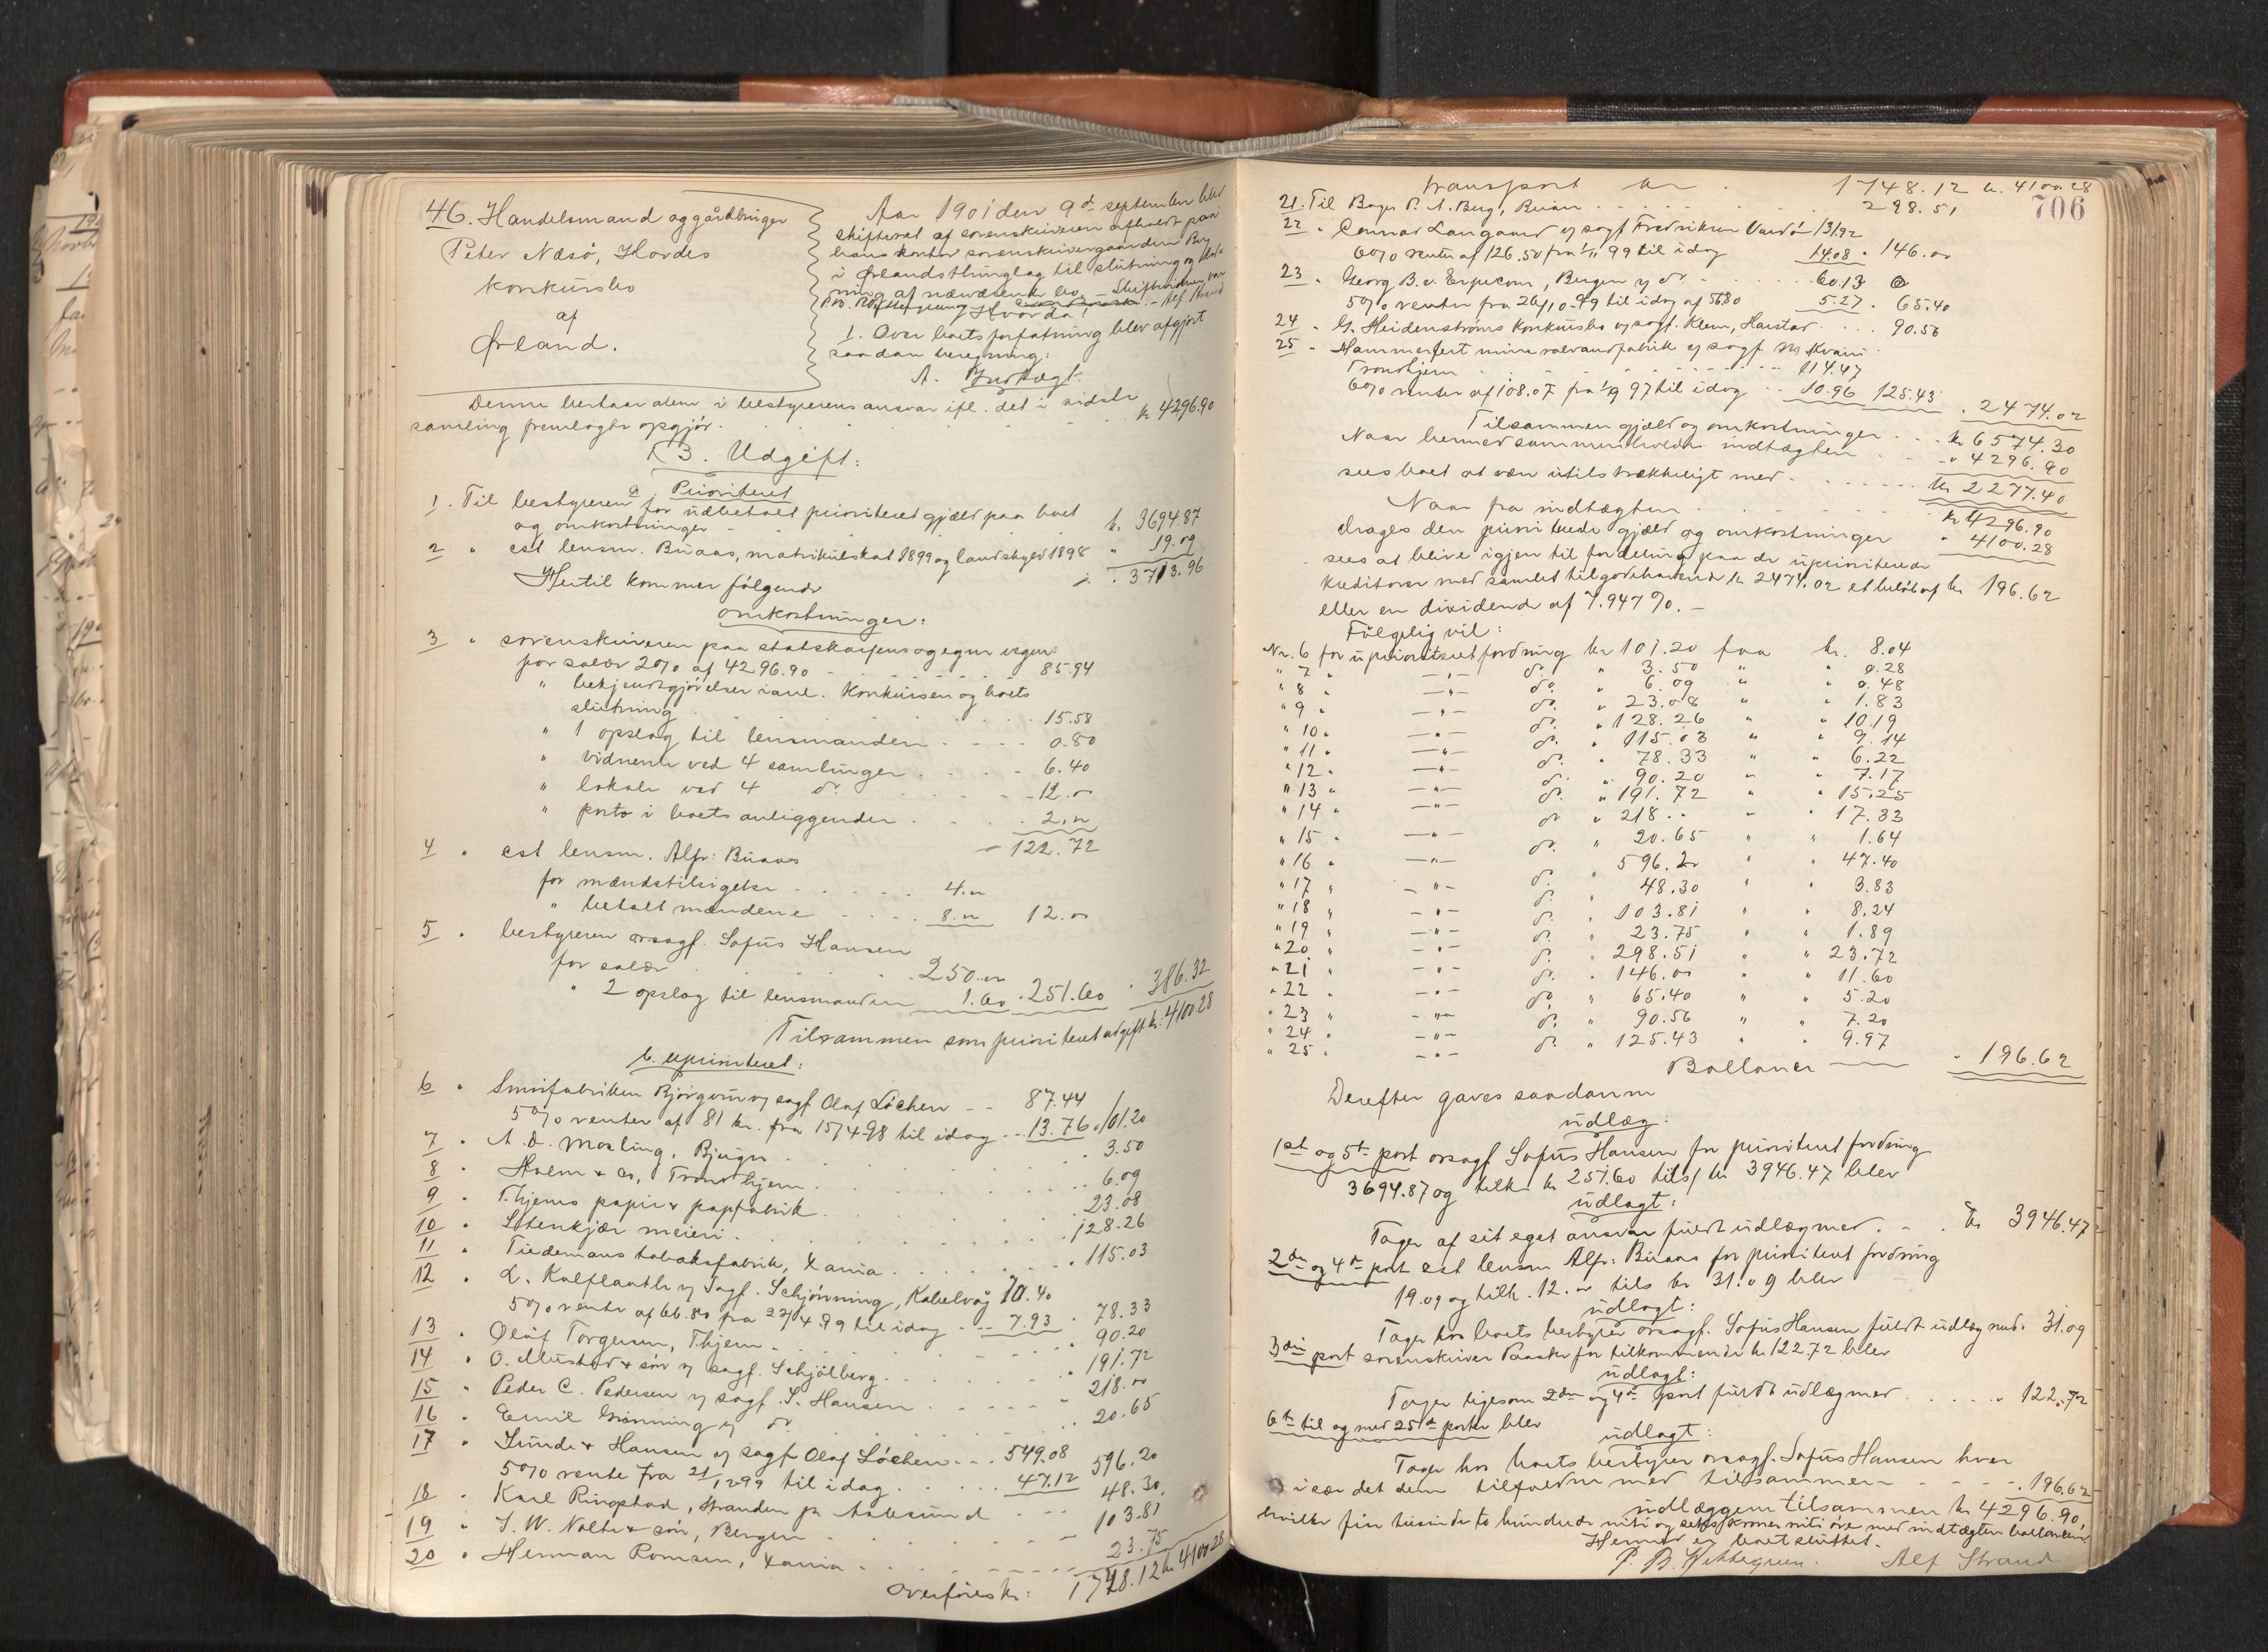 46. Handelsmand og gårdbruger
Peter Næsø, Hovdes
konkursbo
af
Ørland.
Aar 1901 den 9de september blev
skifteret af sorenskriveren afholdt paa
hans kontor sorenskrivergaarden
i Ørlands thinglag til slutning og
ning af nærværende bo. – Skiftevidner var
Alf Strand
Hvorda!
1. Over boets forfatning blev afgjort
saadan beregning:
A. Indtægt.
Denne bestaar alene i bestyrerens ansvar ifl. det i sidste
samling fremlagte opgjør. kr 4296.90
B. Udgift:
a. Prioriteret
1. Til bestyreren for udbetalt prioriteret gjæld paa boet
og omkostninger k. 3694.87
2 " cst lensm. Buaas, matrikulskat 1899 og landskyld 1898 " 19.09
Hertil kommer følgende . 3713.96
omkostninger:
3 " sorenskriveren paa statskassens og egne vegne:
for salær 2% af 4296.90 85.94
" bekjendtgjørelser i anl. konkursen og boets
slutning 15.58
" 1 opslag til lensmanden 0.80
" vidnerne ved 4 samlinger 6.40
" lokale ved 4 do. 12.00
" porto i boets anliggender 2.00
122.72
4 " cst lensm. Alfr: Buaas
for mændstilsigelse 4.00
" betalt mændene 8.00 12.00
5 " bestyreren orsagf. Sofus Hansen
for salær 250.00
" 2 opslag til lensmanden 1.60 . 251.60 . 386.32
Tilsammen som prioriteret udgift kr. 4100.28
b. uprioriteret:
6 " Smørfabriken Bjørgvin v sagf Olaf Løchen 87.44
5% renter af 81 kr. fra 15/4 98 til idag 13.76 . 101.20
7 " A. D. Mosling, Bjugn 3.50
8 " Holm & co, Trondhjem 6.09
9 " T.hjems papir & papfabrik 23.08
10 " Stenkjær meieri 128.26
11 " Tiedemans tobaksfabrik, Xania 115.03
12 " L. Kalflanth v Sagf. Schjønning, Kabelvåg 70.40
5% rente af 66.80 fra 22/4 99 til idag 7.93 . 78.33
13 " Oluf Torgersen, Thjem 90.20
14 " O. Mustad & søn v sagf. Schjølberg 191.72
15 " Peder C. Pedersen v sagf. S. Hansen 218.00
16 " Emil Grønning v do 20.65
17 " Sunde & Hansen v sagf Olaf Løchen 549.08
5% rente fra 21/12 99 til idag 47.12 596.20
18 " Karl Ringstad, Stranden pr Aalesund 48.30
19 " J. W. Nolte & søn, Bergen 103.81
20 " Herman Romsen, Xania 23.75
Overføres kr: 1748.12 kr 4100.28
706
Transport kr 1748.12 kr. 4100.28
21. Til Bager P. A. Berg, Buan 298.51
22 " Connar Langaard v sagf Fredriksen Vardø 131.92
6% rente af 126.50 fra 1/11 99 til idag 14.08 . 146.00
23 " Georg B. v. Erpecom, Bergen v do. 60.13
5% renter fra 26/10 99 til idag af 56.80 5.27 . 65.40
24 " G. Heidenstrøms konkursbo v sagf. Klem, Harstad 90.56
25 " Hammerfest mineralvandfabrik v sagf M. Kvam
Trondhjem 114.47
6% renter af 108.07 fra 1/9 97 til idag 10.96 125.43 . 2474.02
Tilsammen gjæld og omkostninger kr 6574.30
Naar hermed sammenholdes indtægten " 4296.90
sees boet at være utilstrækkeligt med kr 2277.40
Naar fra indtægten kr 4296.90
drages den prioriterede gjæld og omkostninger " 4100.28
sees at blive igjen til fordeling paa de uprioriterede
kreditorer med samlet tilgodehavende kr 2474.02 et beløb af kr 196.62
eller en dividende af 7.947%. –
Følgelig vil:
Nr. 6 for uprioriteret fordring kr 101.20 faa kr. 8.04
" 7 " –"– do. " 3.50 " " 0.28
" 8 " –"– do. " 6.09 " " 0.48
" 9 " –"– do. " 23.08 " " 1.83
" 10 " –"– do. " 128.26 " " 10.19
" 11 " –"– do. " 115.03 " " 9.14
" 12 " –"– do. " 78.33 " " 6.22
" 13 " –"– do. " 90.20 " " 7.17
" 14 " –"– do. " 191.72 " " 15.25
" 15 " –"– do. " 218.. " " 17.33
" 16 " –"– do. " 20.65 " " 1.64
" 17 " –"– do. " 596.20 " " 47.40
" 18 " –"– do. " 48.30 " " 3.83
" 19 " –"– do. " 103.81 " " 8.24
" 20 " –"– do. " 23.75 " " 1.89
" 21 " –"– do. " 298.51 " " 23.72
" 22 " –"– do. " 146.00 " " 11.60
" 23 " –"– do. " 65.40 " " 5.20
" 24 " –"– do. " 90.56 " " 7.20
" 25 " –"– do. " 125.43 " " 9.97
Ballance . 196.62
Derefter gaves saadanne
udlæg:
1ste og 5te post orsagf. Sofus Hansen for prioriteret fordring
3694.87 og tilk. kr 251.60 tils. kr 3946.47 blev
udlagt:
Tager af sit eget ansvar fuldt udlæg med kr 3946.47
2den og 4de post cst lensm Alfr: Buaas for prioriteret fordring
19.09 og tilk. 12.00 tils kr 31.09 blev
udlagt:
Tager hos boets bestyrer orsagf. Sofus Hansen fuldt udlæg med 31.09
3die post sorenskriver for tilkommende kr 122.72 blev
udlagt:
Tager ligesom 2den og 4de post fuldt udlæg med " 122.72
6te til og med 25de poster blev
udlagt:
Tager hos boets bestyrer orsagf. Sofus Hansen hver
især det dem tilfaldne med tilsammen . 196.62
udlæggene tilsammen kr 4296.90,
hvilke fire tusinde to hundrede niti og seks kroner niti øre med indtægten ballancerer.
Hermed er boet sluttet.
Alf Strand